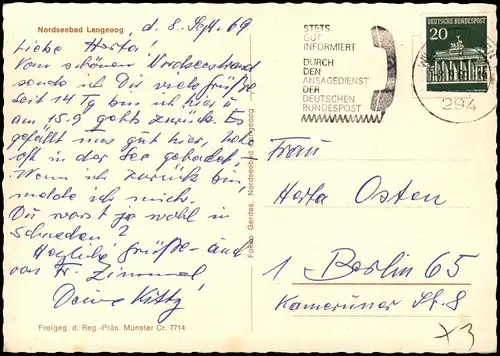 Nordseebad Langeoog
d. 8. Sept. 69
Liebe Herta!
Vom schönen Nordseestrand
sende ich Dir viele Grüße.
Seit 14 Tg bin ich hier u
am 15.9 gehts zurück. Es
gefällt mir gut hier, hab
oft in der See gebadet.
Wenn ich zurück bin,
melde ich mich.
Du warst ja wohl in
Schweden?
Herzliche Grüße - auch
von Fr. Zimmel
Deine Kitty
Freigeg. d. Reg.-Präs. Münster Cr. 7714
Fotos: Gerdes, Nordseebad Langeoog
STETS
GUT
INFORMIERT
DURCH
DEN
ANSAGEDIENST
DER
DEUTSCHEN
BUNDESPOST
DEUTSCHE BUNDESPOST
20
294
Frau
Herta Osten
1 Berlin 65
Kameruner St. 8
x3